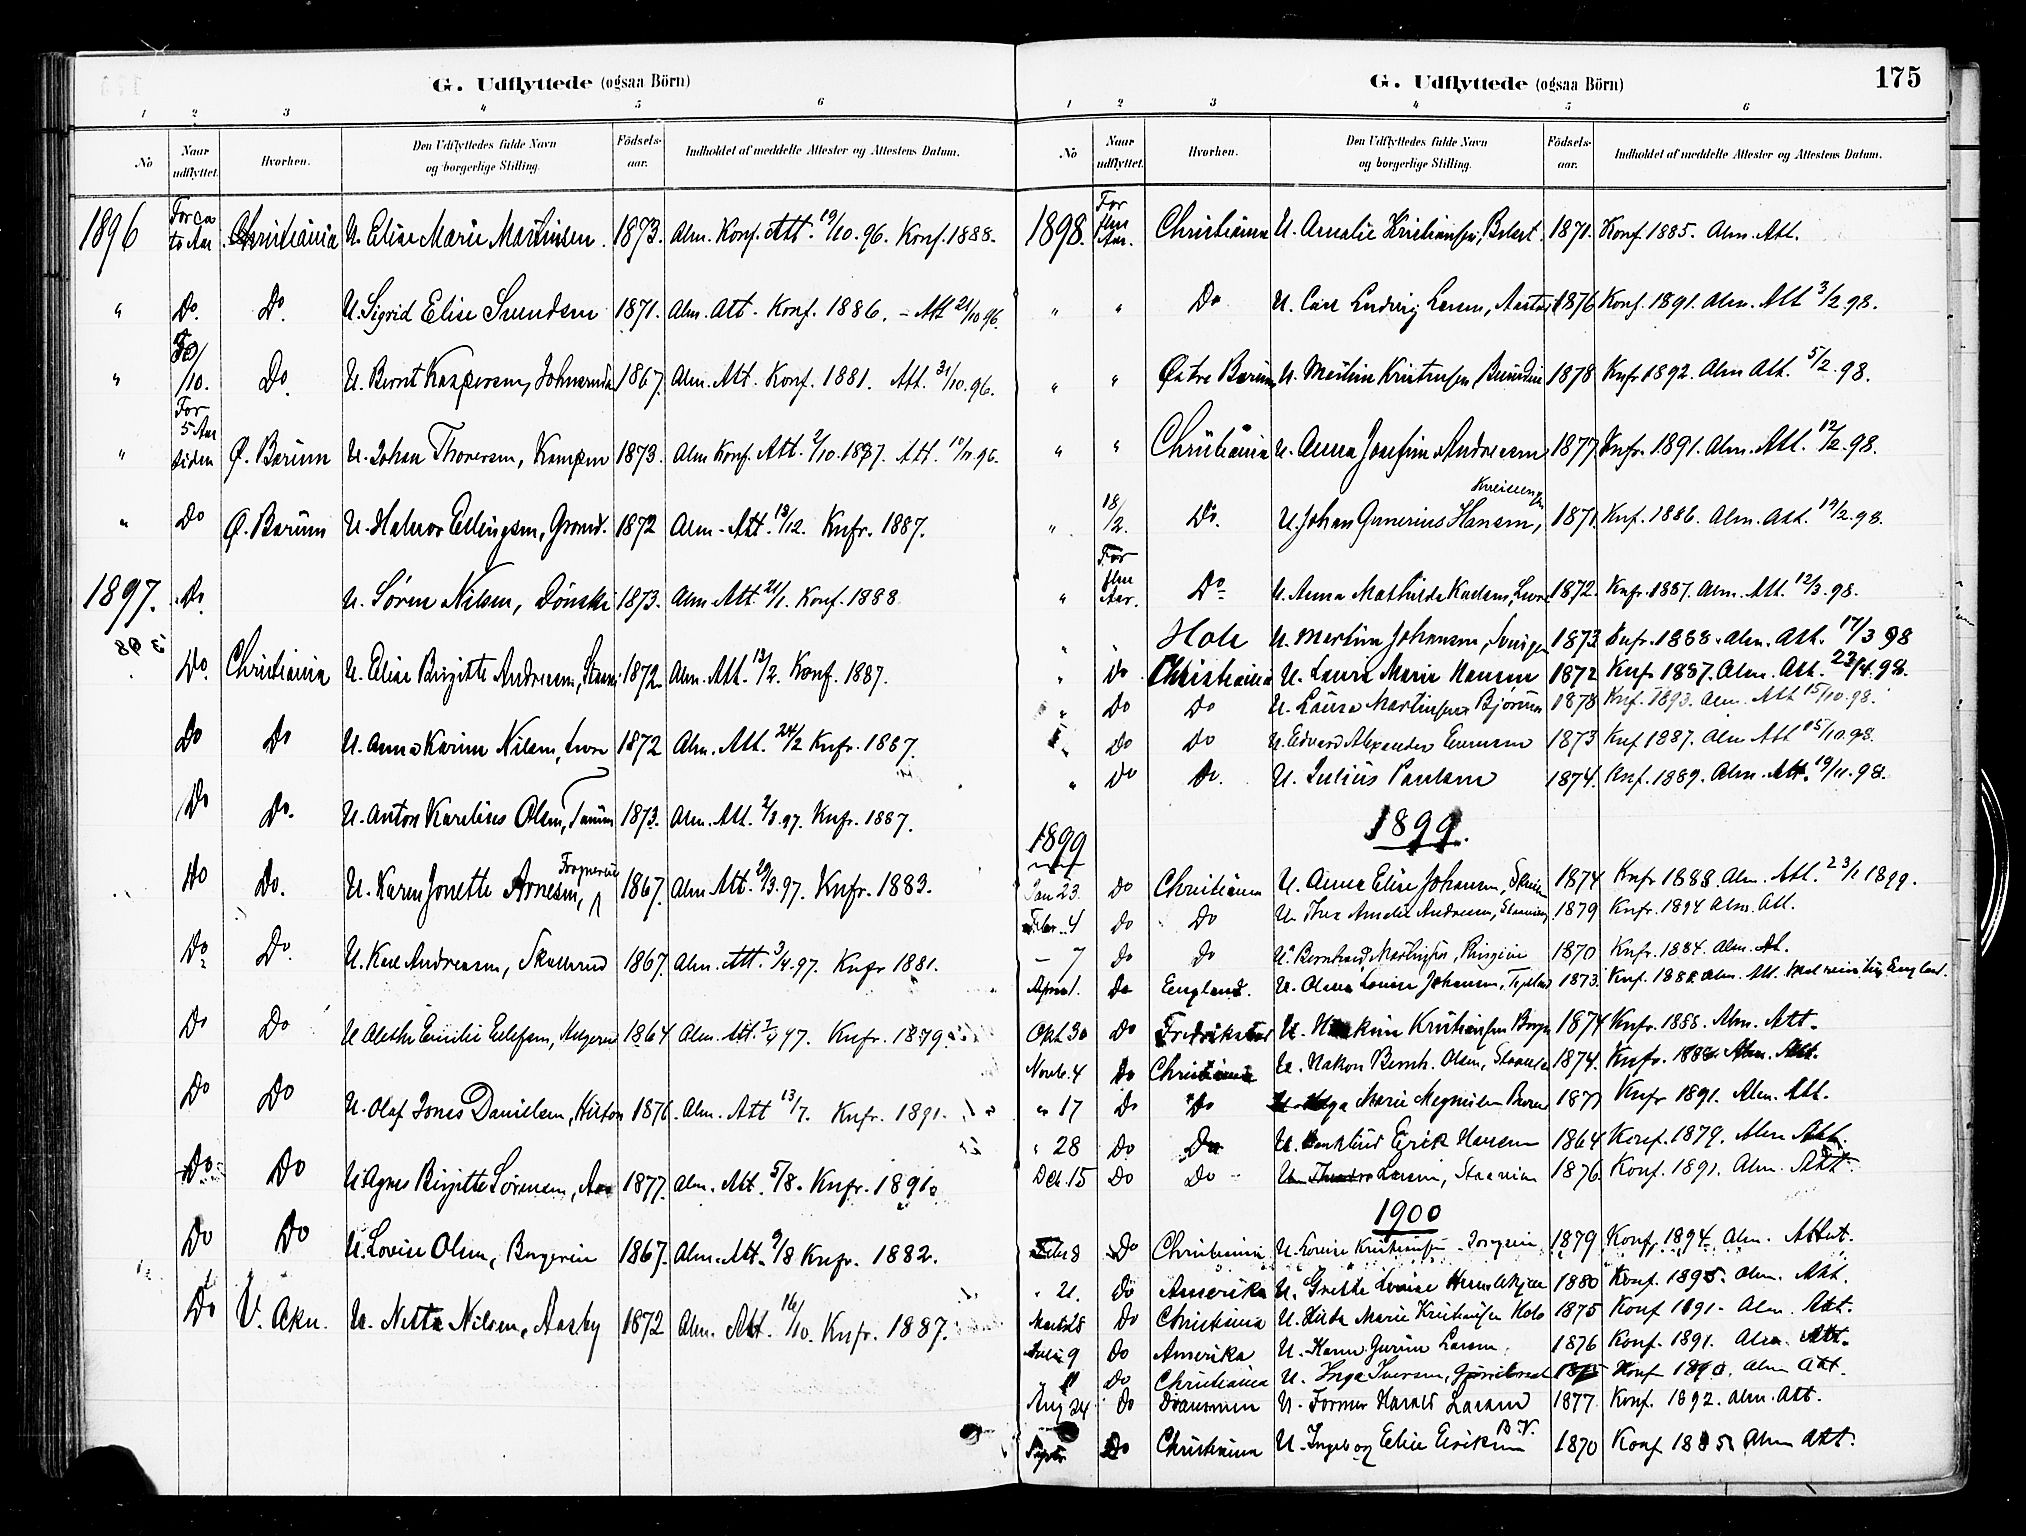 G. Udflyttede (ogsaa Börn)
1 2 3 4 5 6
No Naar udflyttet. Hvorhen. Den Udflyttedes fulde Navn og borgerlige Stilling. Födsels-aar. Indholdet af meddelte Attester og Attestens Datum.
1896 For ca to Aar Christiania U. Elise Marie Martinsen 1873. Alm. Konf. Att. 19/10. 96. Konf. 1888.
" Do. Do. U. Sigrid Elise Svendsen 1871. Alm. Att. Konf. 1886. - Att 21/10 96.
" 30/10. Do. U. Bernt Kaspersen, 1867. Alm. Att. Konf. 1881. Att. 31/10. 96.
" For 5 Aar siden Ø. Bærum U. Johan Thoresen, Kampen 1873. Alm Konf. Att. 2/10. 1887. Att. 96.
" Do Ø. Bærum U. Halvor Ellingsen, Grønd. 1872 Alm. Att. 13/12. Knfr. 1887.
1897. Do. U. Søren Nilsen, Dønski 1873. Alm Att. 21/1. Konf. 1888
Do. Christiania U. Elise Birgitte Andreasen, 1872 Alm. Att. 13/2. Konf. 1887.
Do Do U. Anna Karine Nilsen, 1872 Alm. Att. 24/2 Knfr. 1887.
Do Do. U. Anton Karelius Olsen, Tanum 1873. Alm. Att. 2/3. 97. Knfr. 1887.
Do Do. U. Karen Jonette Arnesen, 1867. Alm Att. 29/3. 97. Knfr. 1883.
Do Do. U. Karl Andreasen, Skallerud 1867. Alm. Att. 3/4. 97. Knfr 1881.
Do Do U Alethe Emilie Ellefsen, 1864 Alm. Att. 97. Knfr. 1879.
Do Do U. Olaf Jonas Danielsen, 1876. Alm. Att 13/7. Knfr. 1891.
Do Do U. Agnes Birgitte Sørensen, 1877. Alm. Att. 5/8. Knfr. 1891.
Do Do U. Lovise Olsen, Borgerin 1867. Alm. Att. 9/8 Knfr. 1882.
Do V. Aker. U. Netta Nilsen, Aasby 1872 Alm. Att. 16/10. Knfr. 1887.
G. Udflyttede (ogsaa Börn) 175
1 2 3 4 5 6
No Naar udflyttet. Hvorhen. Den Udflyttedes fulde Navn og borgerlige Stilling. Födsels-aar. Indholdet af meddelte Attester og Attestens Datum.
1898. For flere Aar. Christiania U. Amalie Kristiansen, 1871. Konf. 1885. Alm. Att.
" " Do U. Carl Ludvig Larsen, 1876 Konf. 1891. Alm. Att 3/2. 98.
" " Østre Bærum U. Martine Kristensen, 1878 Knfr 1892. Alm Att. 5/2. 98.
" " Christiania U. Anna Josefine Andreasen 1877 Knfr. 1891. Alm. Att. 12/2. 98.
" 18/2. Do. U. Johan Gunerius Hansen, 1871. Knf. 1886. Alm. Att. 19/2. 98.
" For flere Aar. Do U. Anna Mathilde Karlsen, 1872. Knfr. 1887. Alm. Att 12/3. 98.
" " Hole U. Martin Johansen, 1873 Knfr. 1888. Alm. Att. 17/3 98
" Do Christiania U. Laura Marie Hansen 1872 Knfr 1887. Alm. Att. 23/4. 98.
" Do Do U. Laura Martinsen Bjørum 1878 Knf. 1893. Alm. Att 15/10. 98.
" Do Do U. Edvard Alexander 1873 Knf 1887. Alm Att 15/10. 98.
" Do Do. U. Julius Paulsen 1874. Knf. 1889. Alm. Att. 19/11. 98.
1899.
1899
Jan 23. Do Christiania U. Anna Elise Johansen, 1874 Knfr 1888. Alm. Att. 23/1 1899.
Febr. 4 Do Do U. Amalie Andresen, 1879 Knfr. 1894 Alm. Att.
- 7 Do Do U. Bernhard Martinsen, 1870 Knfr. 1884. Alm. At.
April 1. Do England. U. Olava Lovise Johansen, 1873. Knf. 1888 Alm. Att. England.
Okt 30 Do Fredrikstad U. Kristiansen 1874 Knfr. 1888. Alm. Att.
Novb. 4 Do Christiania U. Hakon Bernh. Olsen, 1874. Knfr. 1888. Alm. Att.
" 17 Do Do Marie Magnusen 1877 Knfr 1891. Alm. Att.
" 28 Do Do U. Erik Hansen 1864 Konf. 1879. Alm Att.
Dcb. 15 Do Do U. Larsen, 1876. Konf. 1891. Alm. Att.
1900
Febr 8 Do Christiania U. Lovise Kristiansen 1879 Konf. 1894. Alm. Attest.
" 21. Do Amerika U. Grethe Lovise 1880 Konf. 1895. Alm. Att.
Marts 28 Do Christiania U. Hilda Marie Kristiansen 1875 Konf 1891 Alm. Att.
Juli 9 Do Amerika U. Karen Gurine Larsen, 1876 Konf. 1891. Alm. Att.
" Do Christiania U. Inga Iversen, 1875 Konf 1890. Alm Att.
Aug 24 Do Drammen U. Harald Larsen 1877. Konf. 1892. Alm. Att.
Do Christiania U. Ingeborg Elise Eriksen 1870 Konf 1885 Alm Att.